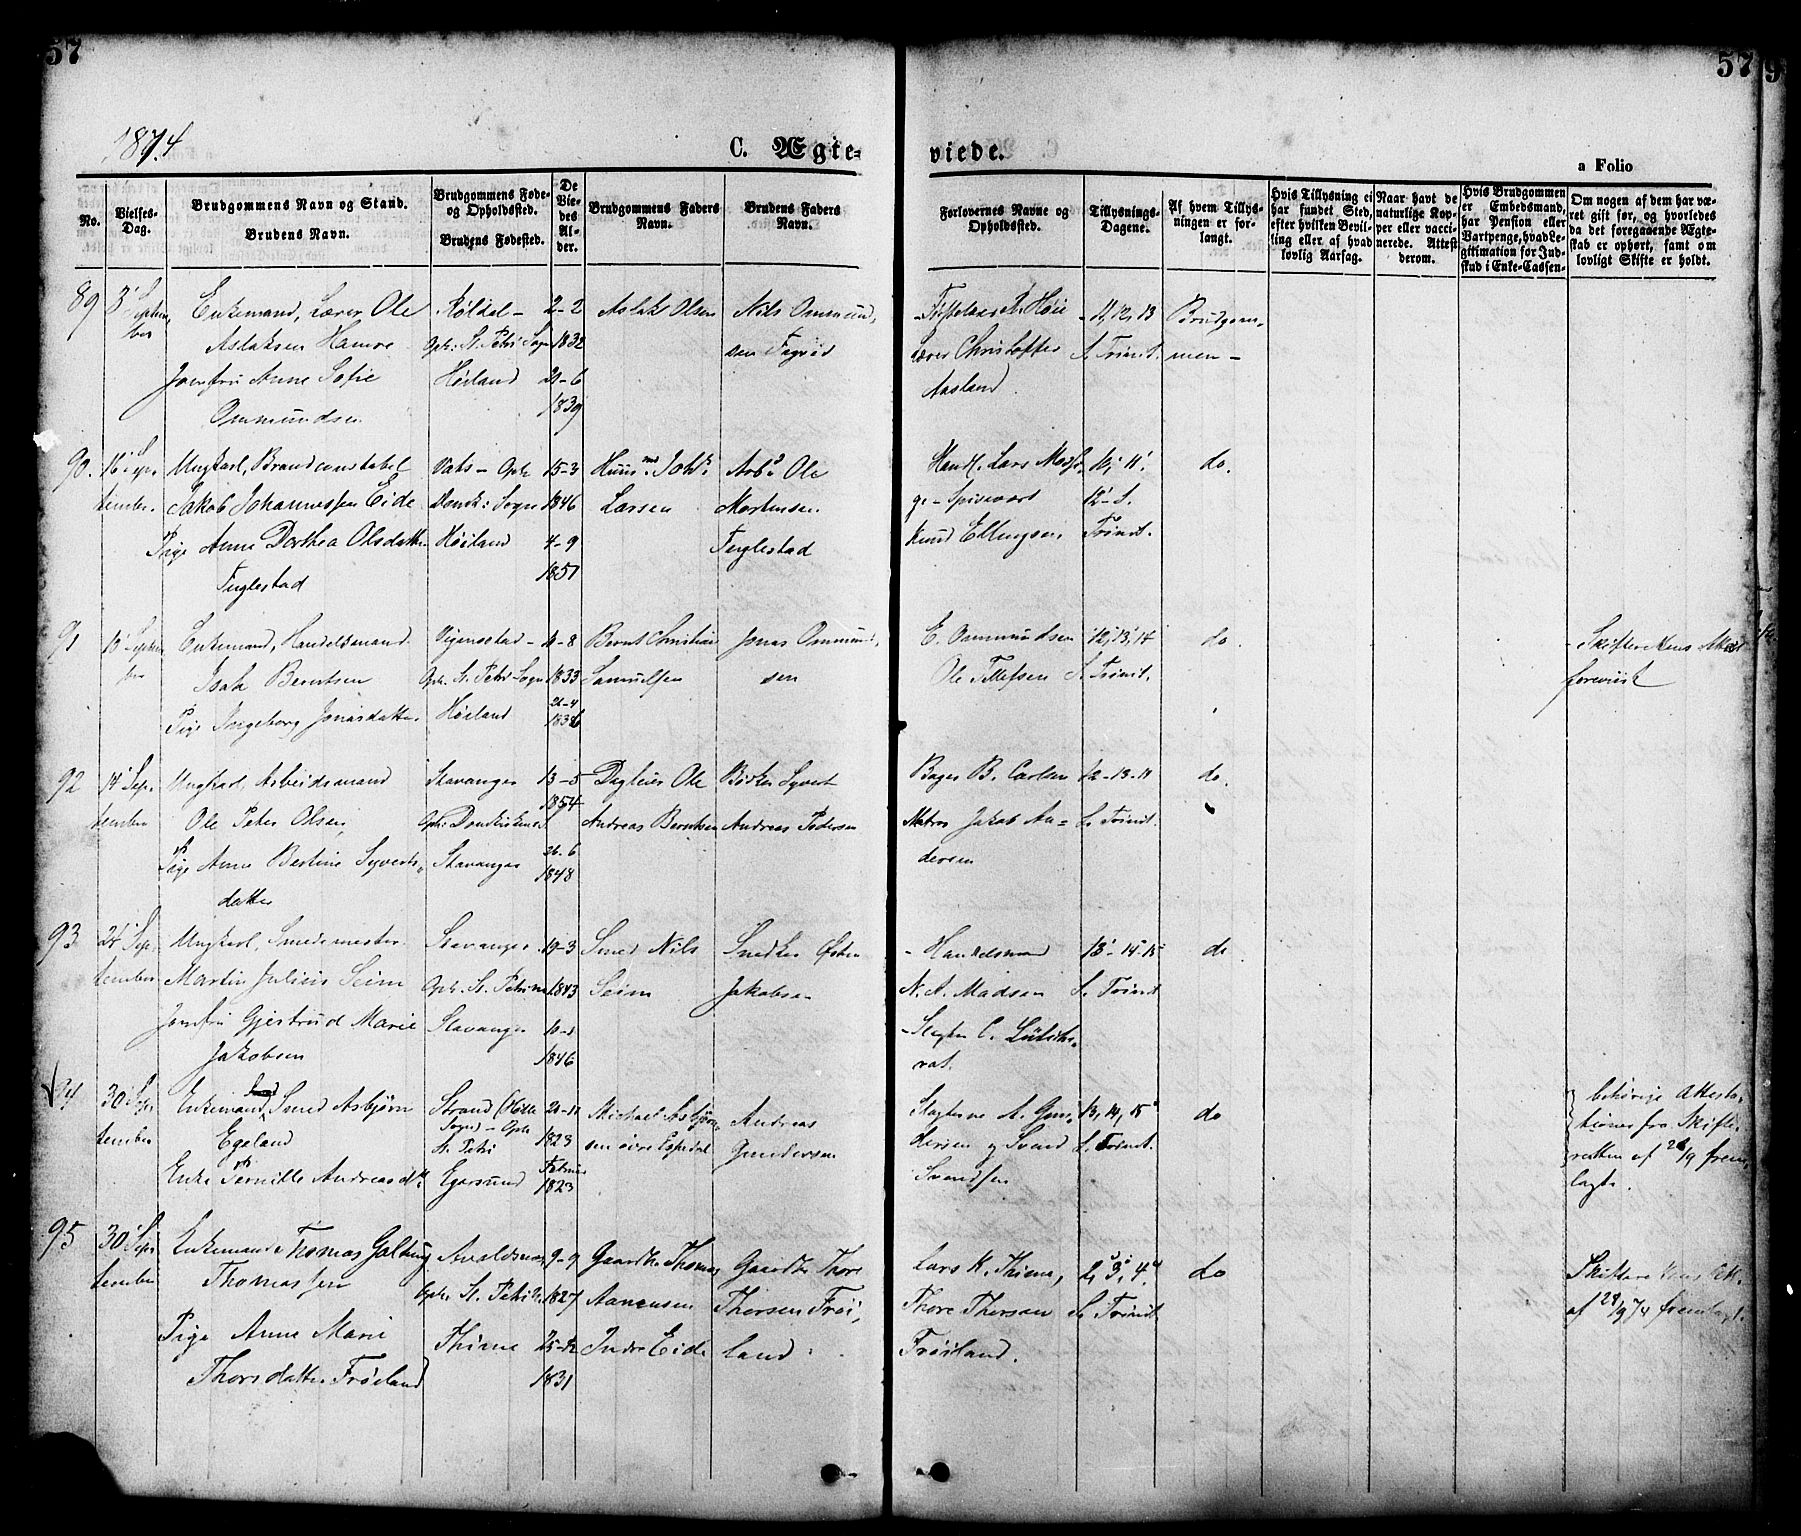 57
57
9
1874
C. Ægte-
viede.
a Folio
No.
Vielses-
Dag.
Brudgommens Navn og Stand.
Brudens Navn.
Brudgommens Føde-
og Opholdssted.
Brudens Fødested.
De
Vie-
des
Al-
der.
Brudgommens Faders
Navn.
Brudens Faders
Navn.
Forlovernes Navne og
Opholdssted.
Tillysnings-
Dagene.
Af hvem Tillys-
ningen er for-
langt.
Hvis Tillysning ei
har fundet Sted,
efter hvilken Bevil-
ling eller af hvad
lovlig Aarsag.
Naar havt de
naturlige Kop-
per eller vacci-
nerede. Attest
derom.
Hvis Brudgommen
er Embedsmand,
har Pension eller
Vartpenge, hvad Le-
gitimation for Ind-
skud i Enke-Cassen.
Om nogen af dem har væ-
ret gift før, og hvorledes
da det foregaaende Ægte-
skab er ophørt, samt om
lovligt Skifte er holdt.
89
8' Septem
ber
Enkemand, Lærer Ole
Aslaksen Hamre
Jomfru Anne Sofie
Ommundsen
Røldal -
Oph: St. Petri Sogn
Høiland
2-2
1832
21-6
1839
Aslak Olsen
Nils Ommund,
sen
A. Høie
Lærer Christoffer
Aasland
11, 12, 13
S. Trinit.
Brudgom,
men -
90.
16' Sep,
tember
Ungkarl, Brandconstabel
Jakob Johannessen Eide
Pige Anne Dorthea Olsdatter
Fuglestad
Vats - Oph
Domk: Sogn
Høiland
15-3
1846
4-9
1851
Huusmd Johs
Larsen
Arbd Ole
Mortensen
Fuglestad
Handl. Lars
ge - Spisevært
Knud Ellingsen
10' 11'
12' S.
Trinit.
do.
91
Septem
ber
Enkemand, Handelsmand
Isak Berntsen
Pige Ingeborg Jonasdatter
Oph. St. Petri Sogn
Høiland
10-8
1833
21-4
1836
Bernt Christian
Samuelsen
Jonas Ommund,
sen
E. Ommundsen
Ole Tollefsen
12, 13, 14
S. Trinit.
do.
forevist
92
14' Sep,
tember
Ungkarl, Arbeidsmand
Ole Peter Olsen,
Pige Anne Bertine Syverts,
datter
Stavanger
Oph: Domkirkens S.
Stavanger
13-5
1854
26-6
1848
Ole
Andreas Berntsen
Bødker Syvert
Andreas Pedersen
Bager B. Carlsen
Matros Jakob An-
dersen
12-13-14
S. Trinit.
do.
93
24' Sep,
tember
Ungkarl, Smedemester
Martin Julius Seim
Jomfru Gjertrud Marie
Jakobsen
Stavanger
Oph. St. Petri
Stavanger
19-3
1843
10-1
1846
Smed Nils
Seim
Snedker Østen
Jakobsen
- Handelsmand
N. A. Madsen
- Slagter C. Lütcher,
rat.
13'-14'-15'
S. Trinit
do
94
30' Sep,
tember
Enkemand, Smed Asbjørn
Egeland
Enke Pernille Andreasdtr
Strand (Hille
Sogn) - Oph
St. Petri
Egersund
20-11
1823
Februar
1823
Michael Asbjørn,
sen øvre Espedal
Andreas
Gundersen
Slagterne A. Gun,
dersen og Svend
Svendsen
13, 14, 15'
S. Trinit.
do
behørige Attesta
tioner fra Skifte,
retten af 28/9 frem,
lagt.
95
30' Sep,
tember
Enkemand Thomas Galtung
Thomassen
Pige Anne Marie
Thorsdatter Frøiland
Avaldsnes
Oph. St. Petri K.
Thime
9-9
1827
25-12
1831
Gaardbr. Thomas
Aanensen
Indre Eide
Gaardbr Thore
Thorsen Frøi,
land
Lars K. Thime,
Thore Thorsen
Frøiland.
2, 3, 4
S. Trinit.
do
af 28/9 74 fremlagt.